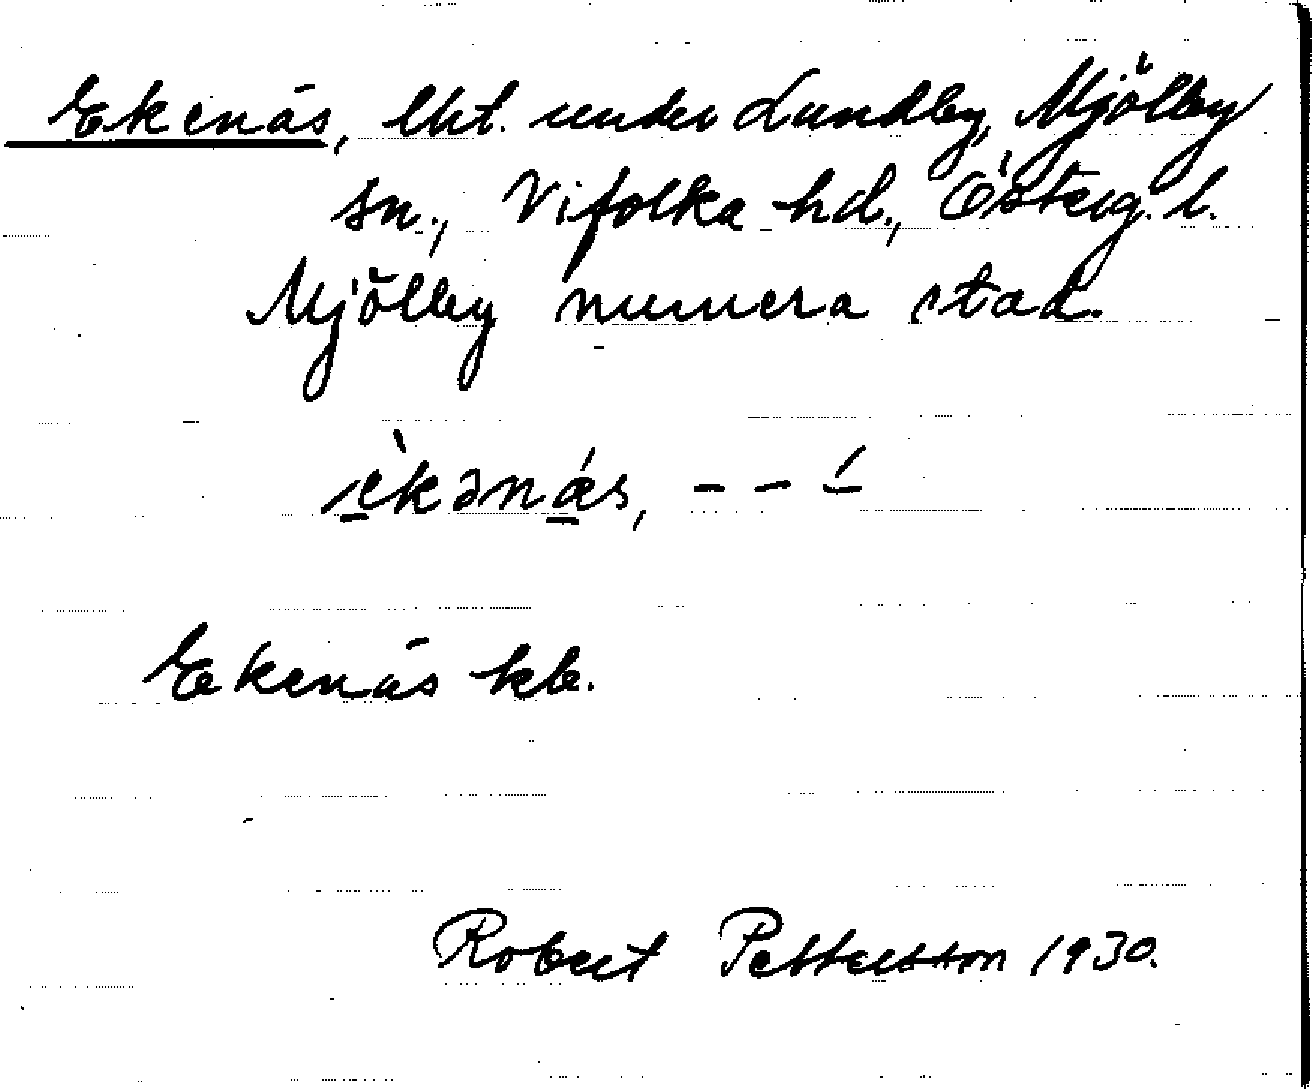 Ekenäs, lht. under Lundby, Mjölby
sn., Vifolka hd., Österg. l.
Mjölby numera stad.
èkənǽs, – – –́
Ekenäs kb.
Robert Pettersson 1930.